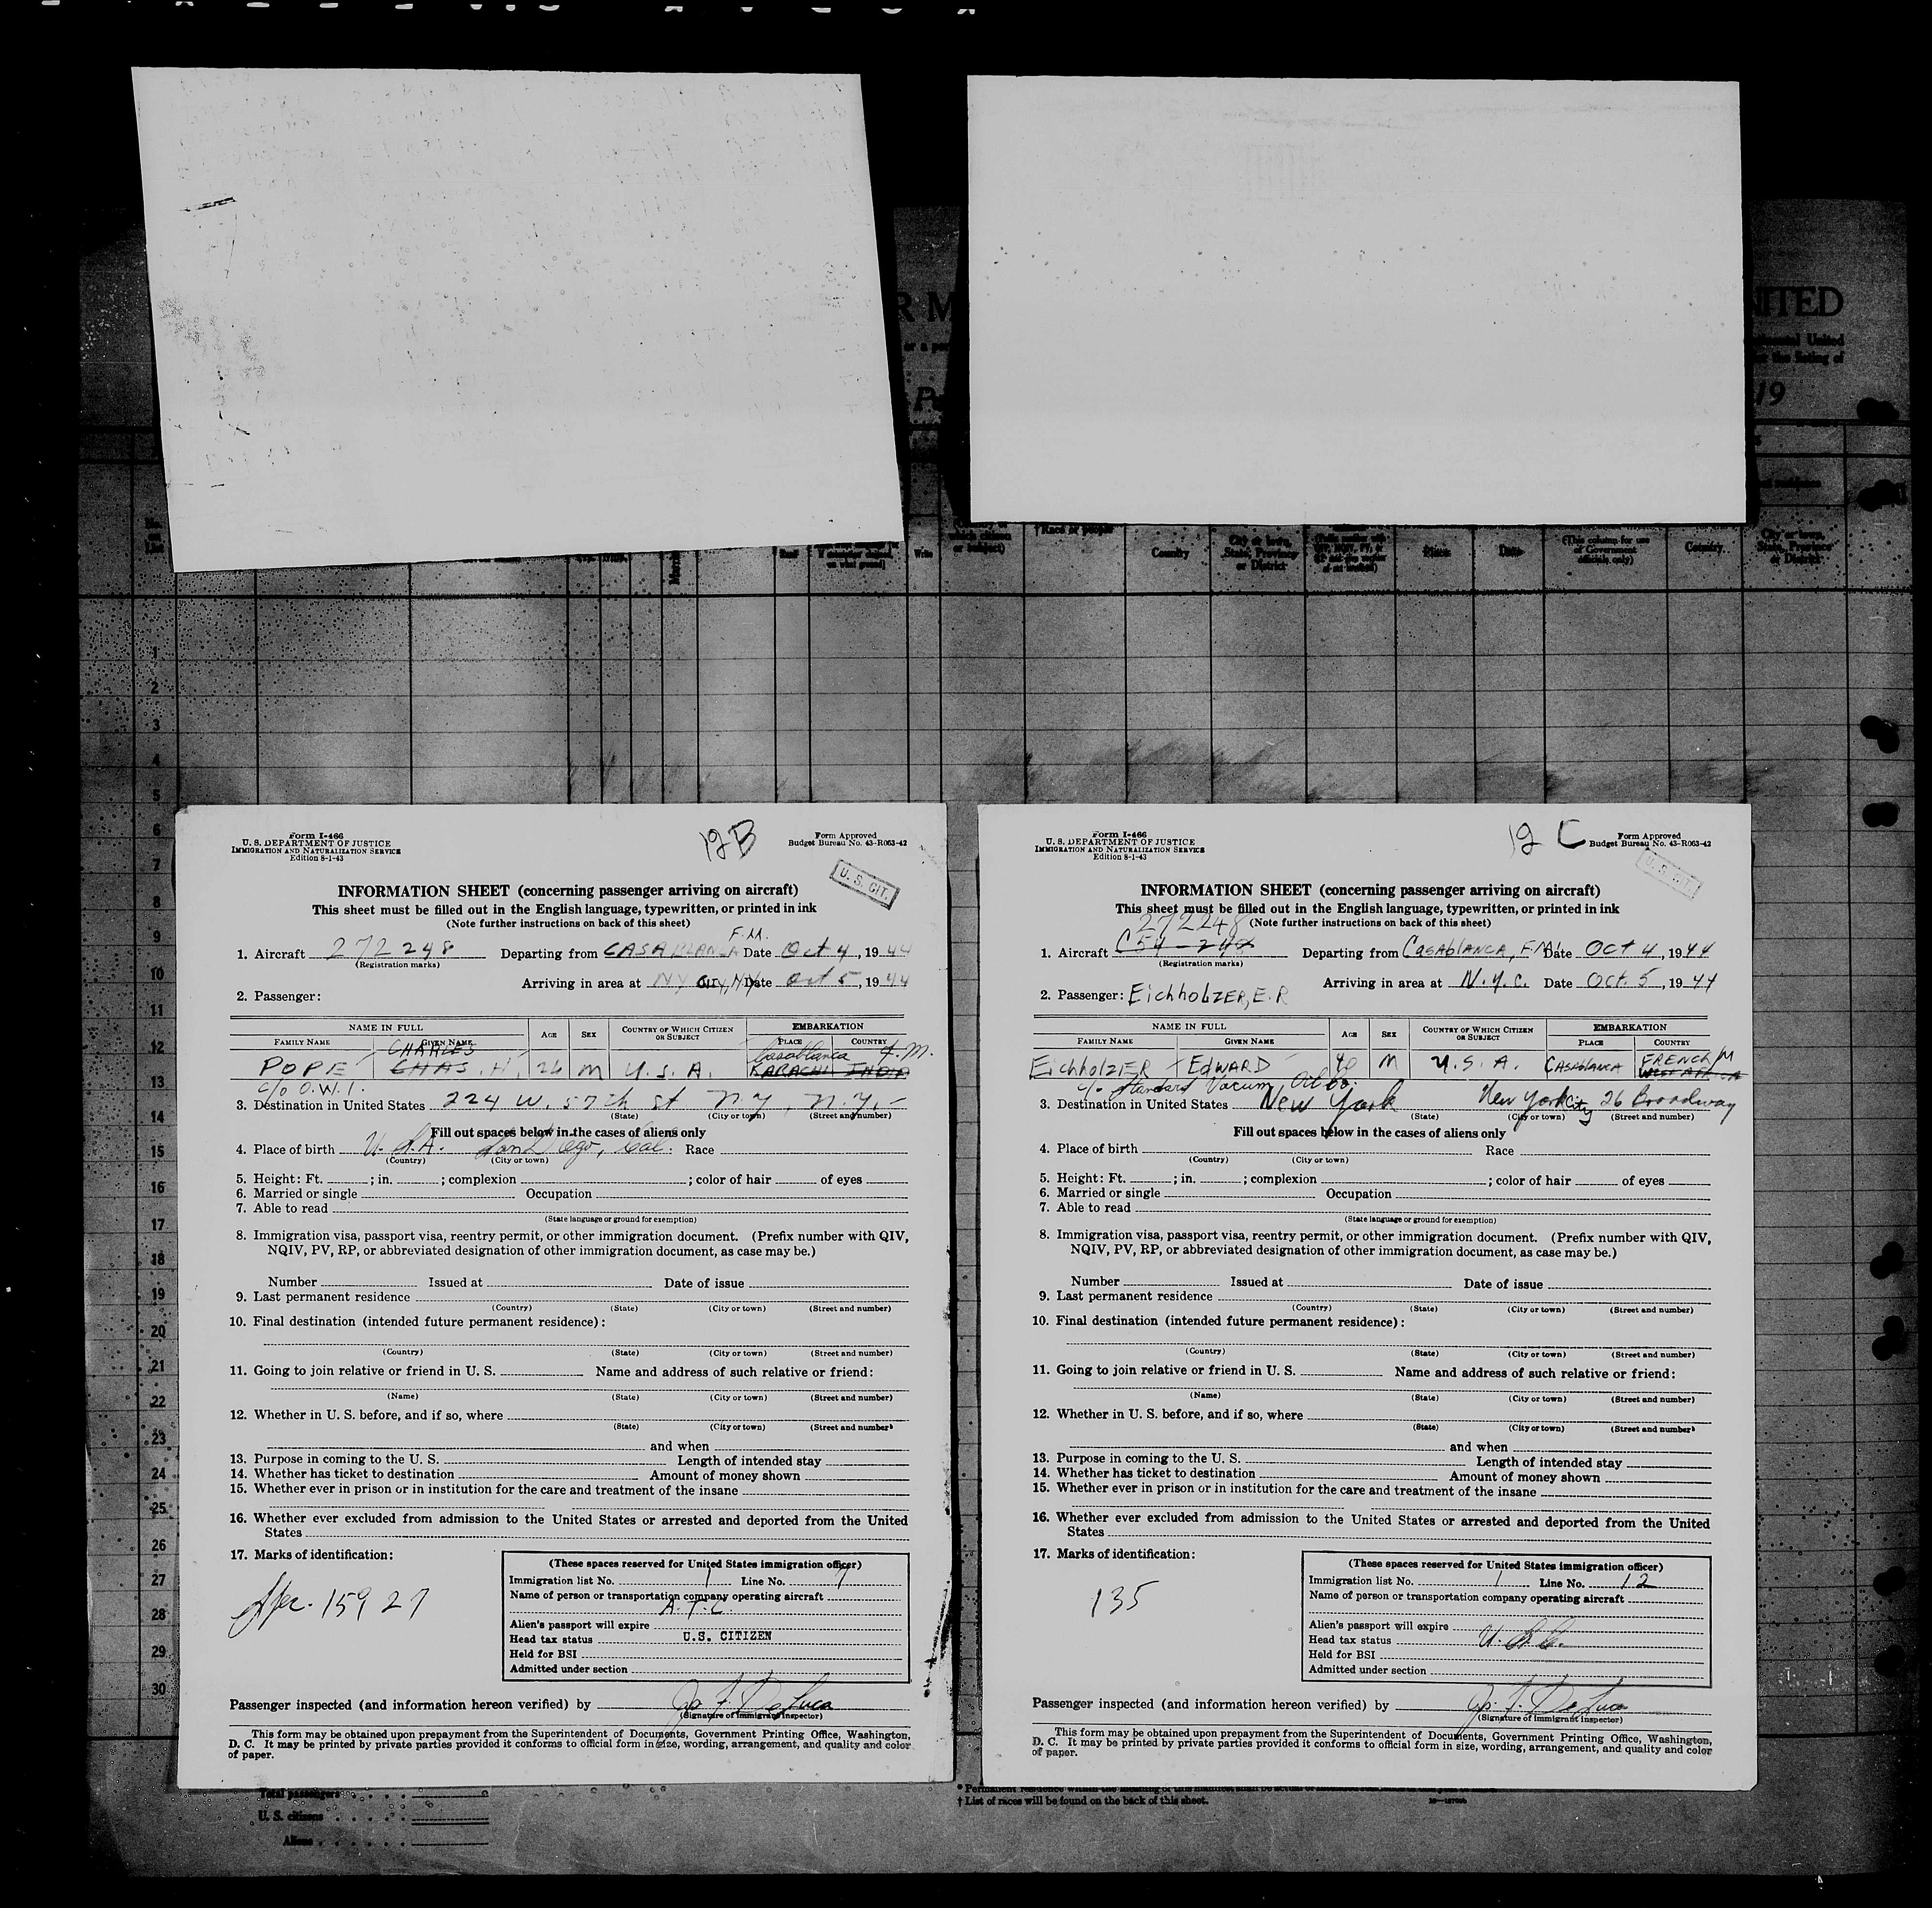 R M
NITED
or a per
nental United
r the listing of
P
19
Country
City or town,
State, Province
or District
Place
Date
(This column for use
of Government
officials only)
Country
City or town,
State, Province
or District
which citizen
or subject)
†Race or people
Read
Write
No.
on
List
1
2
3
4
5
6
7
8
9
10
11
12
13
14
15
16
17
18
19
20
21
22
23
24
25
26
27
28
29
30
Form I-466
U. S. DEPARTMENT OF JUSTICE
IMMIGRATION AND NATURALIZATION SERVICE
Edition 8-1-43
12B
Form Approved
Budget Bureau No. 43-R063-42
U. S. CIT.
INFORMATION SHEET (concerning passenger arriving on aircraft)
This sheet must be filled out in the English language, typewritten, or printed in ink
(Note further instructions on back of this sheet)
F.M.
1. Aircraft 272248 Departing from CASABLANCA Date Oct 4, 1944
(Registration marks)
Arriving in area at NY City, NY Date Oct 5, 1944
2. Passenger:
NAME IN FULL AGE SEX COUNTRY OF WHICH CITIZEN OR SUBJECT EMBARKATION
FAMILY NAME GIVEN NAME PLACE COUNTRY
CHARLES Casablanca F.M.
POPE CHAS. H. 26 M U.S.A. KARACHI INDIA
c/o O.W.I.
3. Destination in United States 224 W. 57th St N.Y., N.Y.
(State) (City or town) (Street and number)
Fill out spaces below in the cases of aliens only
4. Place of birth U.S.A. San Diego, Cal. Race
(Country) (City or town)
5. Height: Ft. ; in. ; complexion ; color of hair of eyes
6. Married or single Occupation
7. Able to read
(State language or ground for exemption)
8. Immigration visa, passport visa, reentry permit, or other immigration document. (Prefix number with QIV,
NQIV, PV, RP, or abbreviated designation of other immigration document, as case may be.)
Number Issued at Date of issue
9. Last permanent residence
(Country) (State) (City or town) (Street and number)
10. Final destination (intended future permanent residence):
(Country) (State) (City or town) (Street and number)
11. Going to join relative or friend in U. S. Name and address of such relative or friend:
(Name) (State) (City or town) (Street and number)
12. Whether in U. S. before, and if so, where
(State) (City or town) (Street and number)
and when
13. Purpose in coming to the U. S. Length of intended stay
14. Whether has ticket to destination Amount of money shown
15. Whether ever in prison or in institution for the care and treatment of the insane
16. Whether ever excluded from admission to the United States or arrested and deported from the United
States
17. Marks of identification:
15927
(These spaces reserved for United States immigration officer)
Immigration list No. 1 Line No. 7
Name of person or transportation company operating aircraft
A.T.C.
Alien's passport will expire
Head tax status U.S. CITIZEN
Held for BSI
Admitted under section
Passenger inspected (and information hereon verified) by Jos. F. DeLuca
(Signature of Immigrant Inspector)
This form may be obtained upon prepayment from the Superintendent of Documents, Government Printing Office, Washington,
D. C. It may be printed by private parties provided it conforms to official form in size, wording, arrangement, and quality and color
of paper.
Form I-466
U. S. DEPARTMENT OF JUSTICE
IMMIGRATION AND NATURALIZATION SERVICE
Edition 8-1-43
12 C
Form Approved
Budget Bureau No. 43-R063-42
U. S. CIT.
INFORMATION SHEET (concerning passenger arriving on aircraft)
This sheet must be filled out in the English language, typewritten, or printed in ink
(Note further instructions on back of this sheet)
272248
1. Aircraft C54-248 Departing from Casablanca, F.M. Date Oct 4, 1944
(Registration marks)
Arriving in area at N.Y.C. Date Oct. 5, 1944
2. Passenger: EichholzER, E.R
NAME IN FULL AGE SEX COUNTRY OF WHICH CITIZEN OR SUBJECT EMBARKATION
FAMILY NAME GIVEN NAME PLACE COUNTRY
EichholzER EDWARD 40 M U.S.A. CASABLANCA FRENCH M
WEST AFRICA
c/o Standard Vacum Oil Co.
3. Destination in United States New York New York City 26 Broadway
(State) (City or town) (Street and number)
Fill out spaces below in the cases of aliens only
4. Place of birth Race
(Country) (City or town)
5. Height: Ft. ; in. ; complexion ; color of hair of eyes
6. Married or single Occupation
7. Able to read
(State language or ground for exemption)
8. Immigration visa, passport visa, reentry permit, or other immigration document. (Prefix number with QIV,
NQIV, PV, RP, or abbreviated designation of other immigration document, as case may be.)
Number Issued at Date of issue
9. Last permanent residence
(Country) (State) (City or town) (Street and number)
10. Final destination (intended future permanent residence):
(Country) (State) (City or town) (Street and number)
11. Going to join relative or friend in U. S. Name and address of such relative or friend:
(Name) (State) (City or town) (Street and number)
12. Whether in U. S. before, and if so, where
(State) (City or town) (Street and number)
and when
13. Purpose in coming to the U. S. Length of intended stay
14. Whether has ticket to destination Amount of money shown
15. Whether ever in prison or in institution for the care and treatment of the insane
16. Whether ever excluded from admission to the United States or arrested and deported from the United
States
17. Marks of identification:
135
(These spaces reserved for United States immigration officer)
Immigration list No. 1 Line No. 12
Name of person or transportation company operating aircraft
Alien's passport will expire
Head tax status
Held for BSI
Admitted under section
Passenger inspected (and information hereon verified) by Jos. F. DeLuca
(Signature of Immigrant Inspector)
This form may be obtained upon prepayment from the Superintendent of Documents, Government Printing Office, Washington,
D. C. It may be printed by private parties provided it conforms to official form in size, wording, arrangement, and quality and color
of paper.
Total passengers
U. S. citizens
Aliens
† List of races will be found on the back of this sheet.